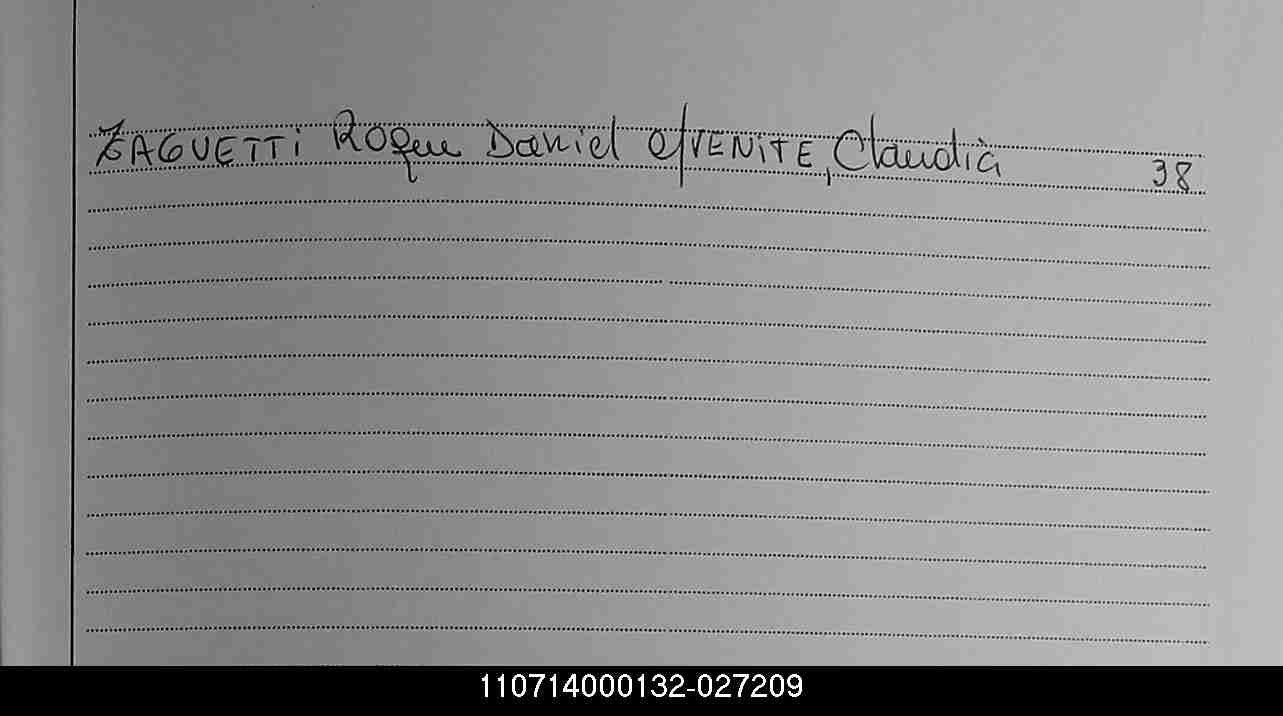 ZAGUETTi Roque Daniel c/VENiTE, Claudia 38
110714000132-027209